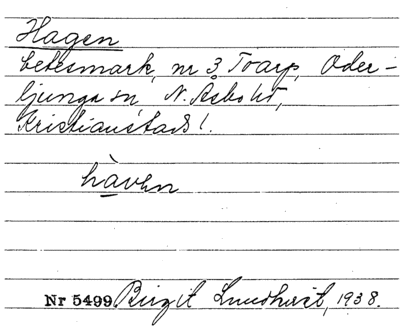 Hagen
betesmark, nr 3 Toarp, Oder-
ljunga sn, N. Åsbo hd,
Kristianstads l.
hàvhn
Nr 5499 Birgit Lundqvist, 1938.